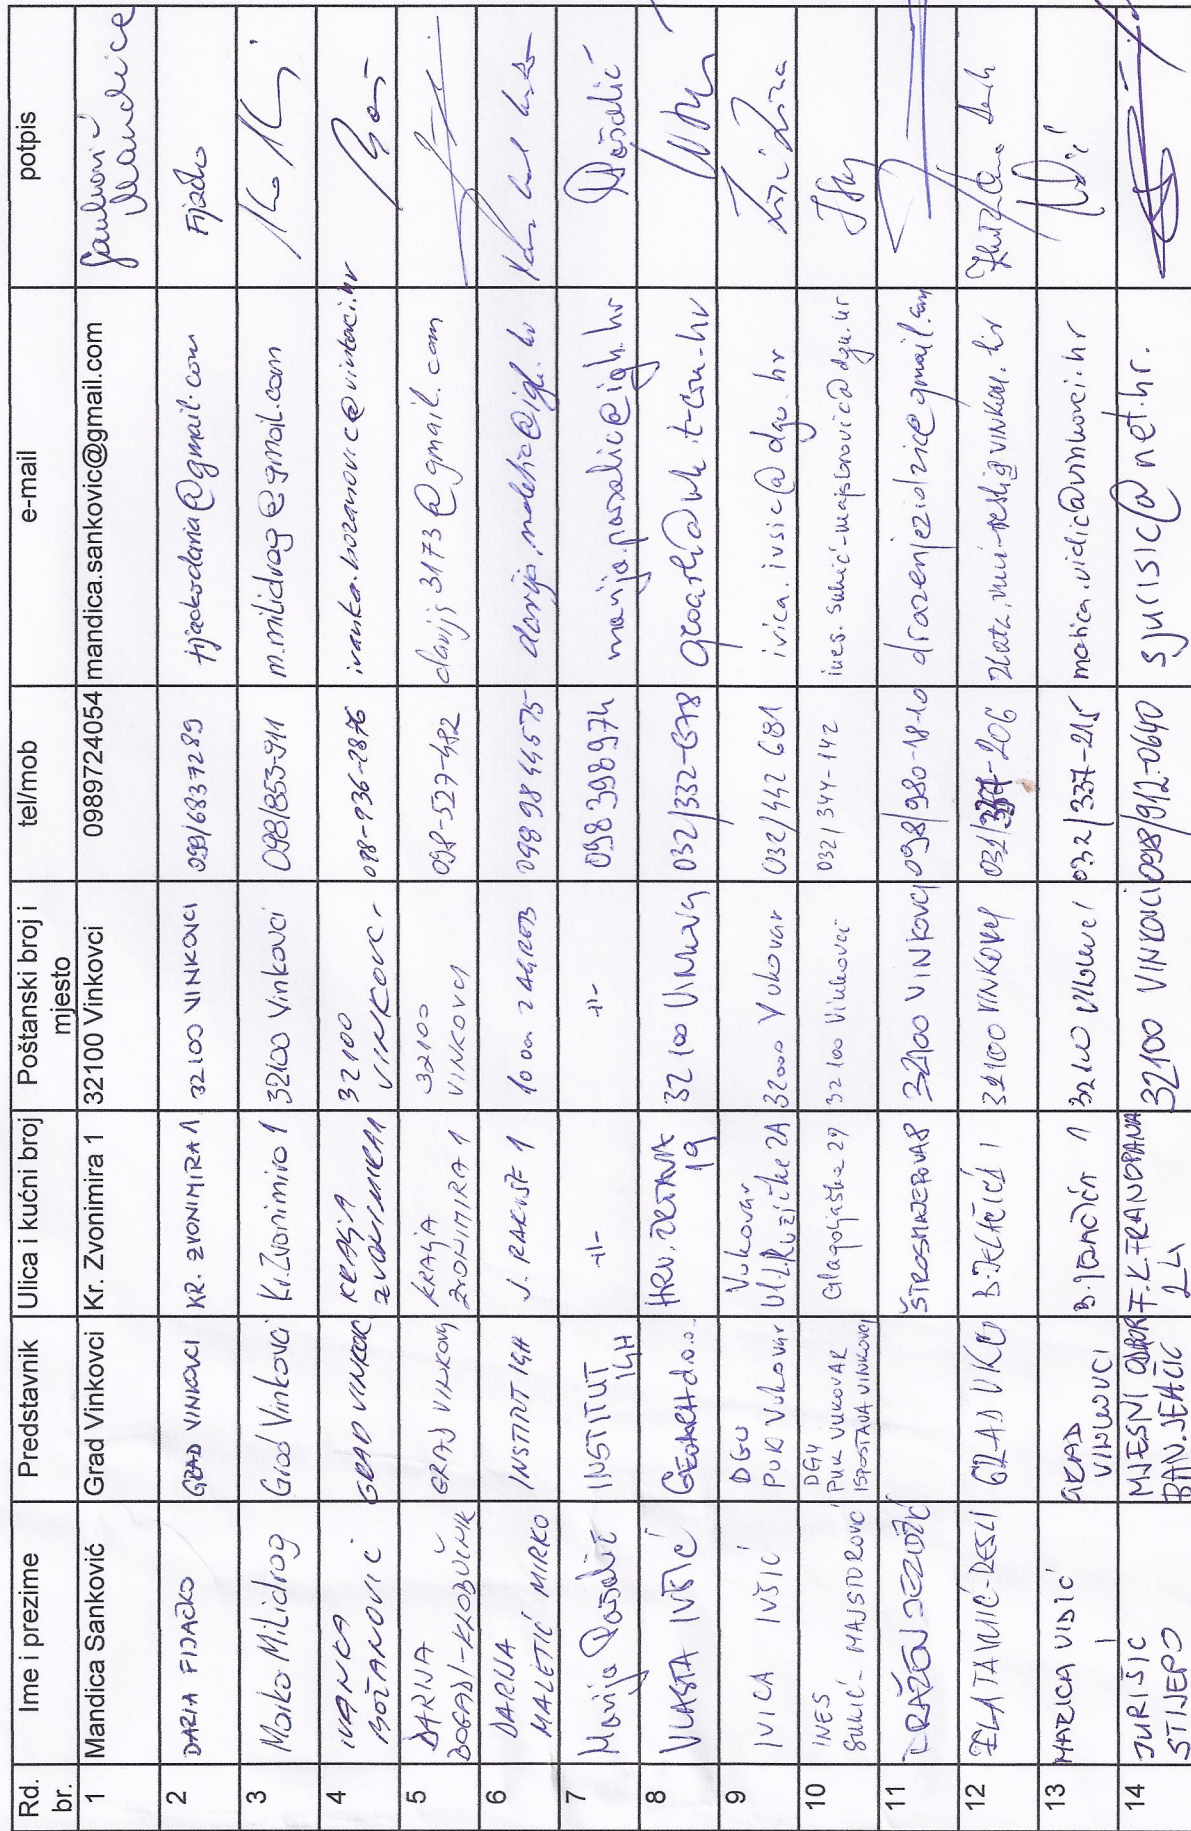 Rd. br.
Ime i prezime
Predstavnik
Ulica i kućni broj
Poštanski broj i mjesto
tel/mob
e-mail
potpis
1
Mandica Sanković
Grad Vinkovci
Kr. Zvonimira 1
32100 Vinkovci
0989724054
mandica.sankovic@gmail.com
Sanković
Mandica
2
DARIA FIJAČKO
GRAD VINKOVCI
KR. ZVONIMIRA 1
32100 VINKOVCI
099/6837289
fijackodaria@gmail.com
Fijačko
3
Marko Milidrag
Grad Vinkovci
Kr. Zvonimira 1
32100 Vinkovci
098/853-911
m.milidrag@gmail.com
4
IVANKA
BOŽANOVIĆ
GRAD VINKOVCI
KRALJA
ZVONIMIRA 1
32100
VINKOVCI
098-936-2876
5
DARIJA
BOGADI-KLOBUČNIK
GRAD VINKOVCI
KRALJA
ZVONIMIRA 1
32100
VINKOVCI
098-527-482
3173@gmail.com
6
DARIJA
MALETIĆ MIRKO
INSTITUT IGH
J. RAKUŠE 1
10 000 ZAGREB
098 98 44 575
darija.maletic@igh.hr
7
Marija Pošalić
INSTITUT
IGH
-II-
-II-
098 398974
8
VLASTA IVŠIĆ
GEOARHI d.o.o.
HRV. ŽRTAVA
19
32 100 Vinkovci
032/332-678
geoarhi@vk.t-com.hr
9
IVICA IVŠIĆ
DGU
PUK Vukovar
Vukovar
Ul. L. Ružičke 2A
32000 Vukovar
032/442 681
ivica.ivsic@dgu.hr
10
INES
SUKIĆ-MAJSTOROVIĆ
DGU
PUK VUKOVAR
ISPOSTAVA VINKOVCI
Glagoljaška 27
32 100 Vinkovci
032/344-142
ines.sukić-majstorovic@dgu.hr
11
DRAŽEN JEZIDŽIĆ
ŠTROSMAJEROVA 8
32100 VINKOVCI
098/980-18-10
drazenjezidzic@gmail.com
12
GRAD VKCI
B. JELAČIĆA 1
32100 VINKOVCI
032/337-206
13
MARICA VIDIĆ
GRAD
VINKOVCI
B. JELAČIĆA 1
32100 Vinkovci
032/337-215
marica.vidic@vinkovci.hr
14
JURIŠIĆ
STIJEPO
MJESNI ODBOR
BAN. JELAČIĆ
F. K. FRANOPANA
24
32100 VINKOVCI
098/912-0640
sjurisic@net.hr.